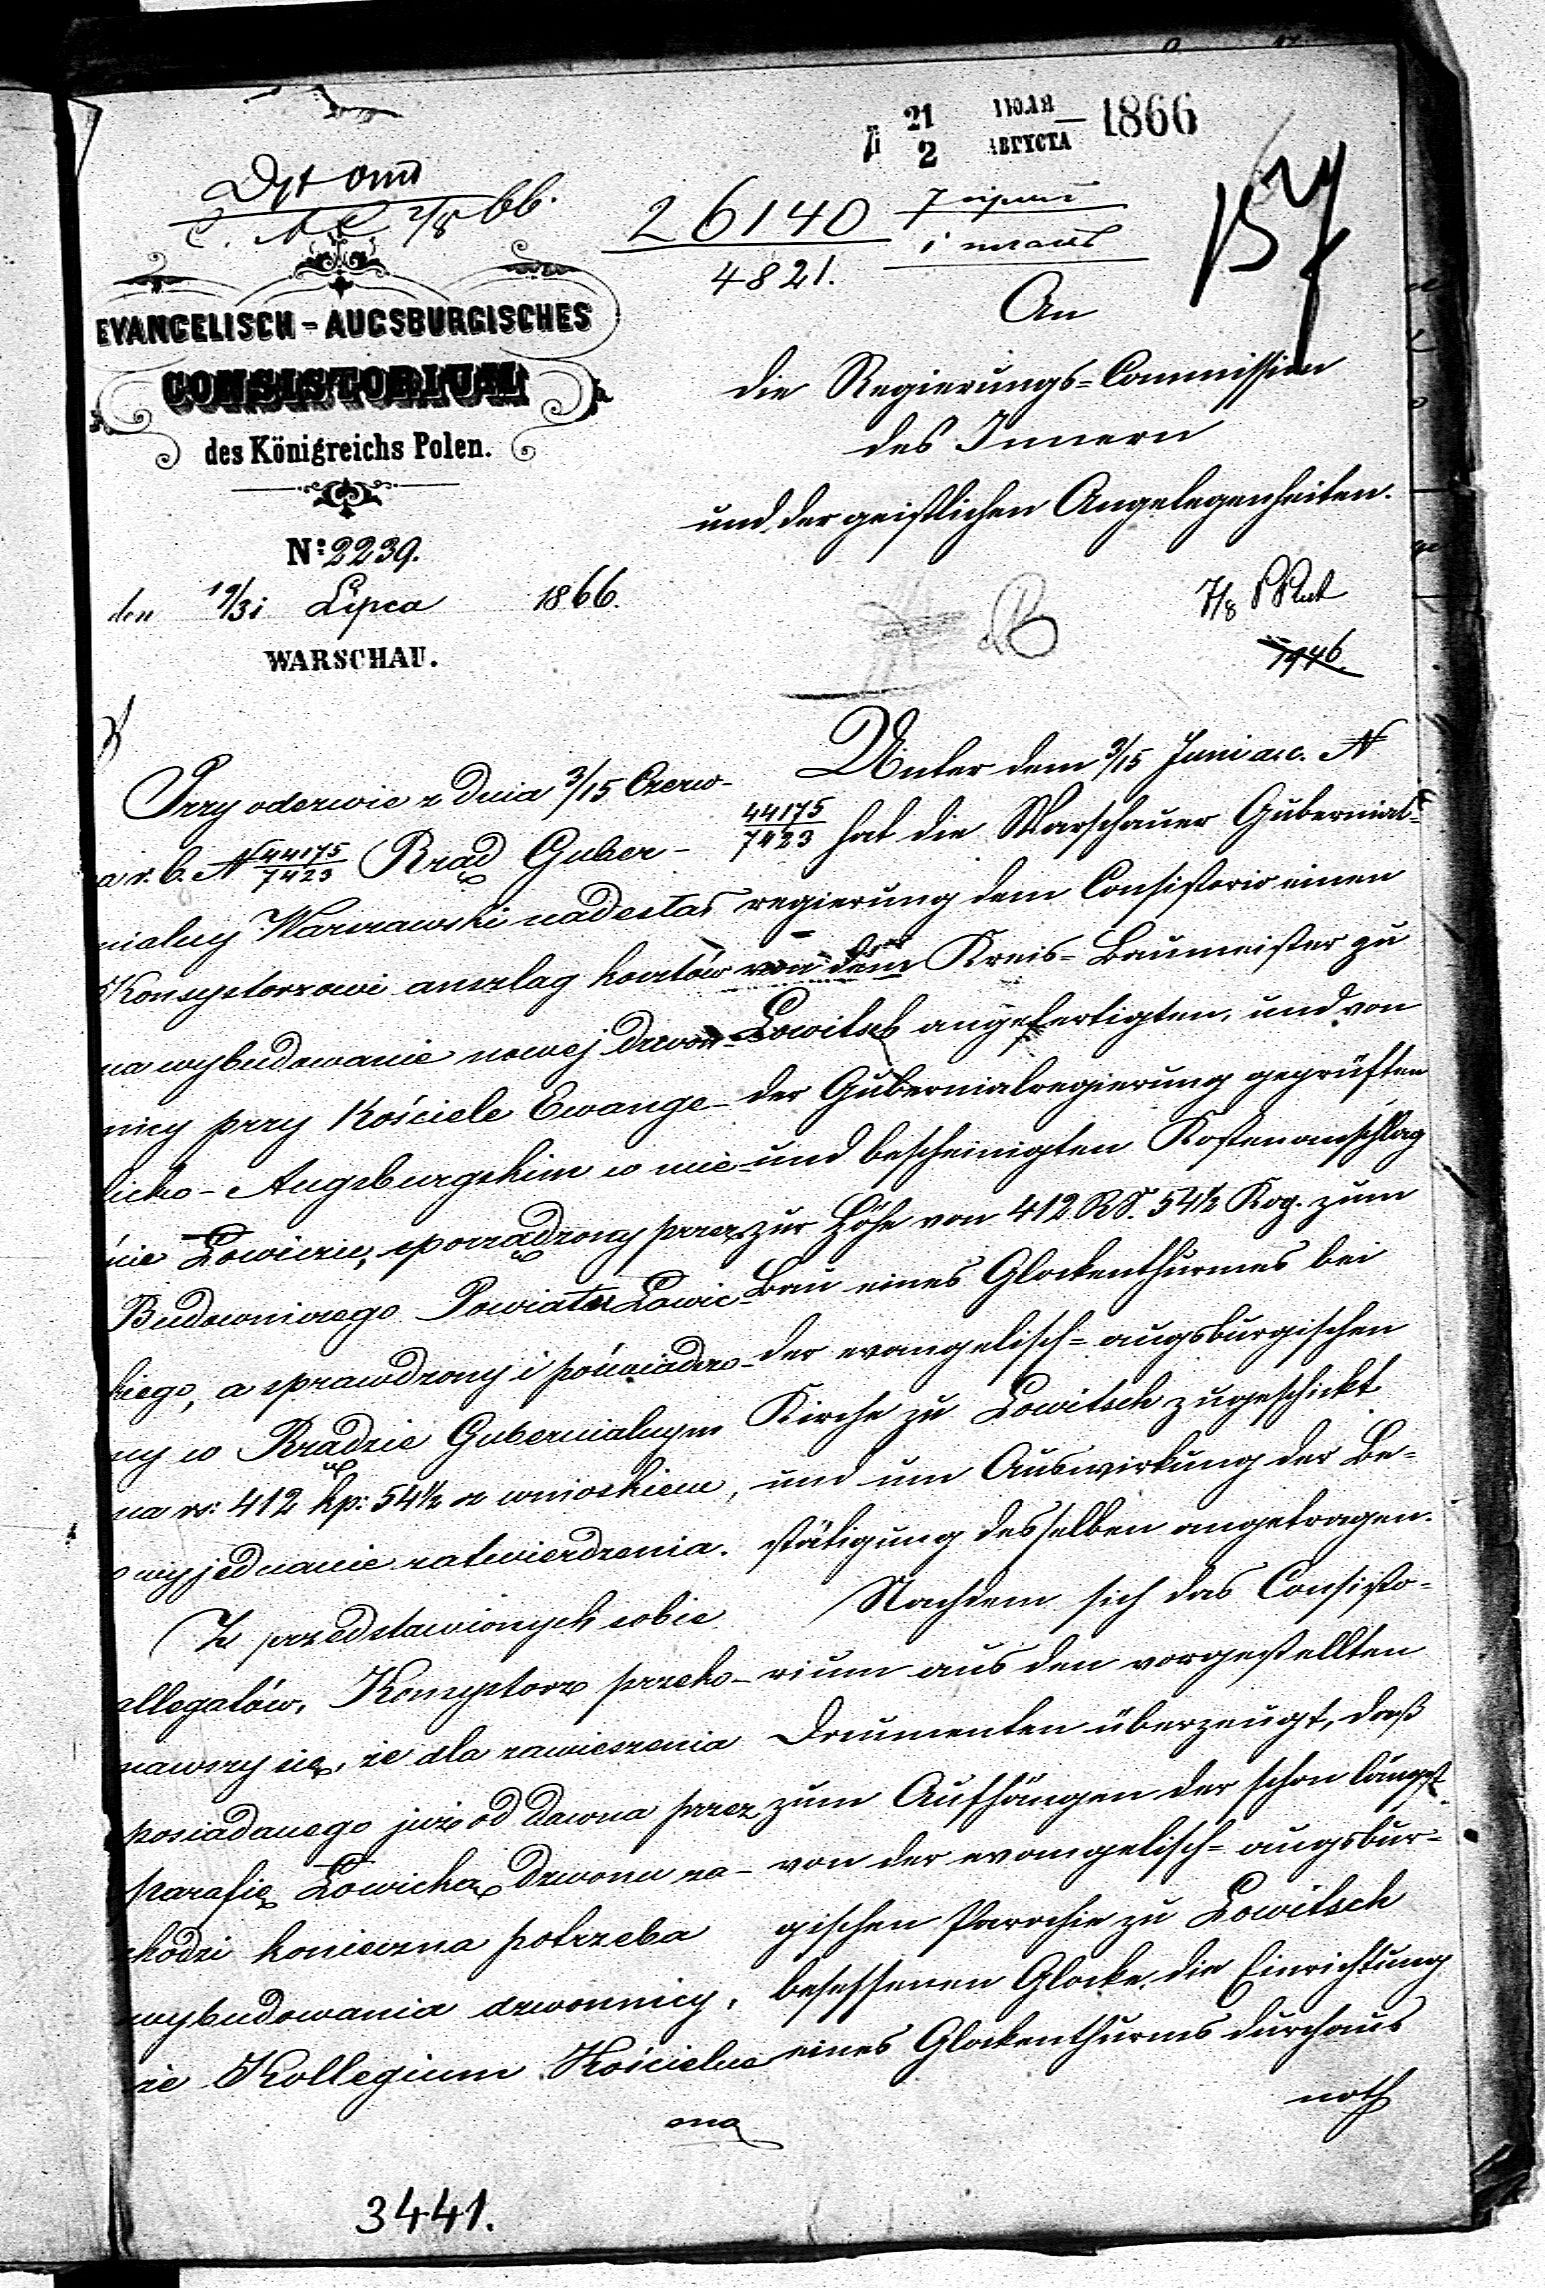 21 ІЮЛЯ
2 АВГУСТА 1866
2/8 66.
26140
4821.
157
EVANGELISCH-AUGSBURGISCHES
CONSISTORIUM
des Königreichs Polen.
Nº 2239.
den 19/31 Lipca 1866.
WARSCHAU.
An
die Regierungs=Commission
des Innern
und der geistlichen Angelegenheiten.
7/8
1946.
Przy odezwie z dnia 3/15 Czerw-
a r. b. N 44175/7423 Rząd Guber-
nialny Warszawski nadesłał
Konsystorzowi anszlag kosztów
na wybudowanie nowej dzwon-
nicy przy Kościele Ewange-
licko-Augsburgskim w mie-
ście Łowiczu, sporządzony przez
Budowniczego Powiatu Łowic-
kiego, a sprawdzony i poświadczo-
ny w Rządzie Gubernialnym
na rs: 412 kp: 54½ z wnioskiem,
o wyjednanie zatwierdzenia.
Z przedstawionych sobie
allegatów, Konsystorz przeko-
nawszy się, że dla zawieszenia
posiadanego już od dawna przez
parafię Łowicką dzwonu za-
chodzi konieczna potrzeba
wybudowania dzwonnicy,
że Kollegium Kościelne
ona
Unter dem 3/15 Juni a. c. N
44175/7423 hat die Warschauer Gubernial=
regierung dem Consistorio einen
von dem Kreis=Baumeister zu
Lowitsch angefertigten, und von
der Gubernialregierung geprüften
und bescheinigten Kostenanschlag
zur Höhe von 412 RS. 54½ Kop. zum
Bau eines Glockenthurmes bei
der evangelisch=augsburgischen
Kirche zu Lowitsch zugeschickt
und um Auswirkung der Be=
stätigung desselben angetragen.
Nachdem sich das Consisto=
rium aus den vorgestellten
Documenten überzeugt, daß
zum Aufhängen der schon längst
von der evangelisch=augsbur=
gischen Parochie zu Lowitsch
besessenen Glocke, die Einrichtung
eines Glockenthurms durchaus
noth
3441.